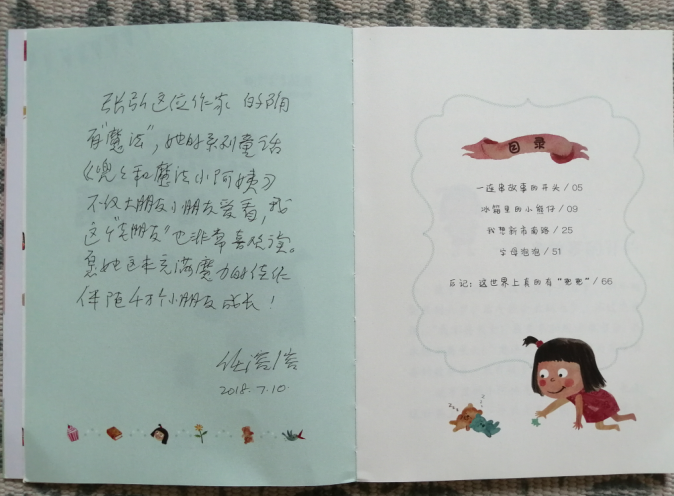 张弘这位作家 的确
有"魔法",她的系列童话
《兜兜和魔法小阿姨》
不仅大朋友小朋友爱看,我
这个"老朋友"也非常喜欢读。
愿她这本充满魔力的佳作
伴随千万个小朋友成长!
任溶溶
2018.7.10.
目录
一连串故事的开头/05
冰箱里的小熊仔/09
我想 /25
字母泡泡/51
后记:这世界上真的有"兜兜"/66